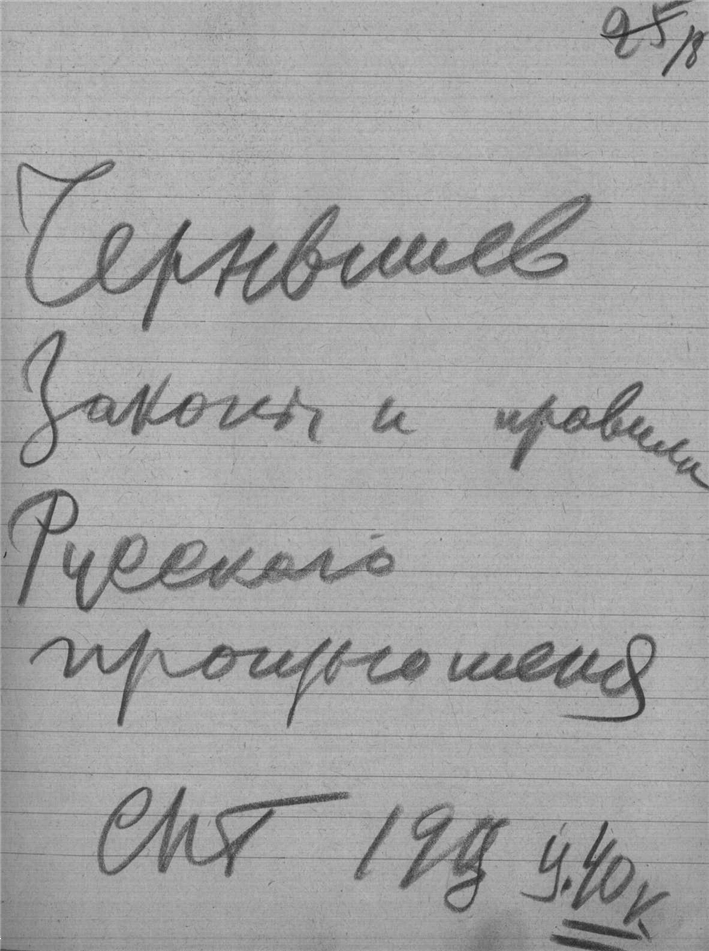 25/8
Чернышев
Законы и правила
Русского
произношения
СПТ 19 ц. 40 к